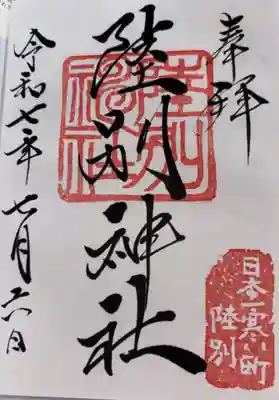 奉拝
日本一寒い町
陸別
陸別神社
陸別
神社
令和七年七月六日